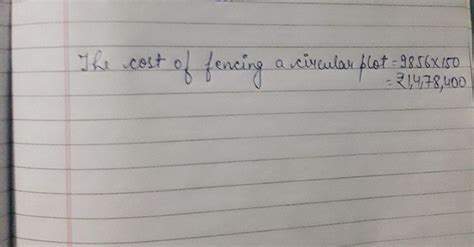 The cost of fencing a circular plot = 9856×150
= ₹1,4,78,400